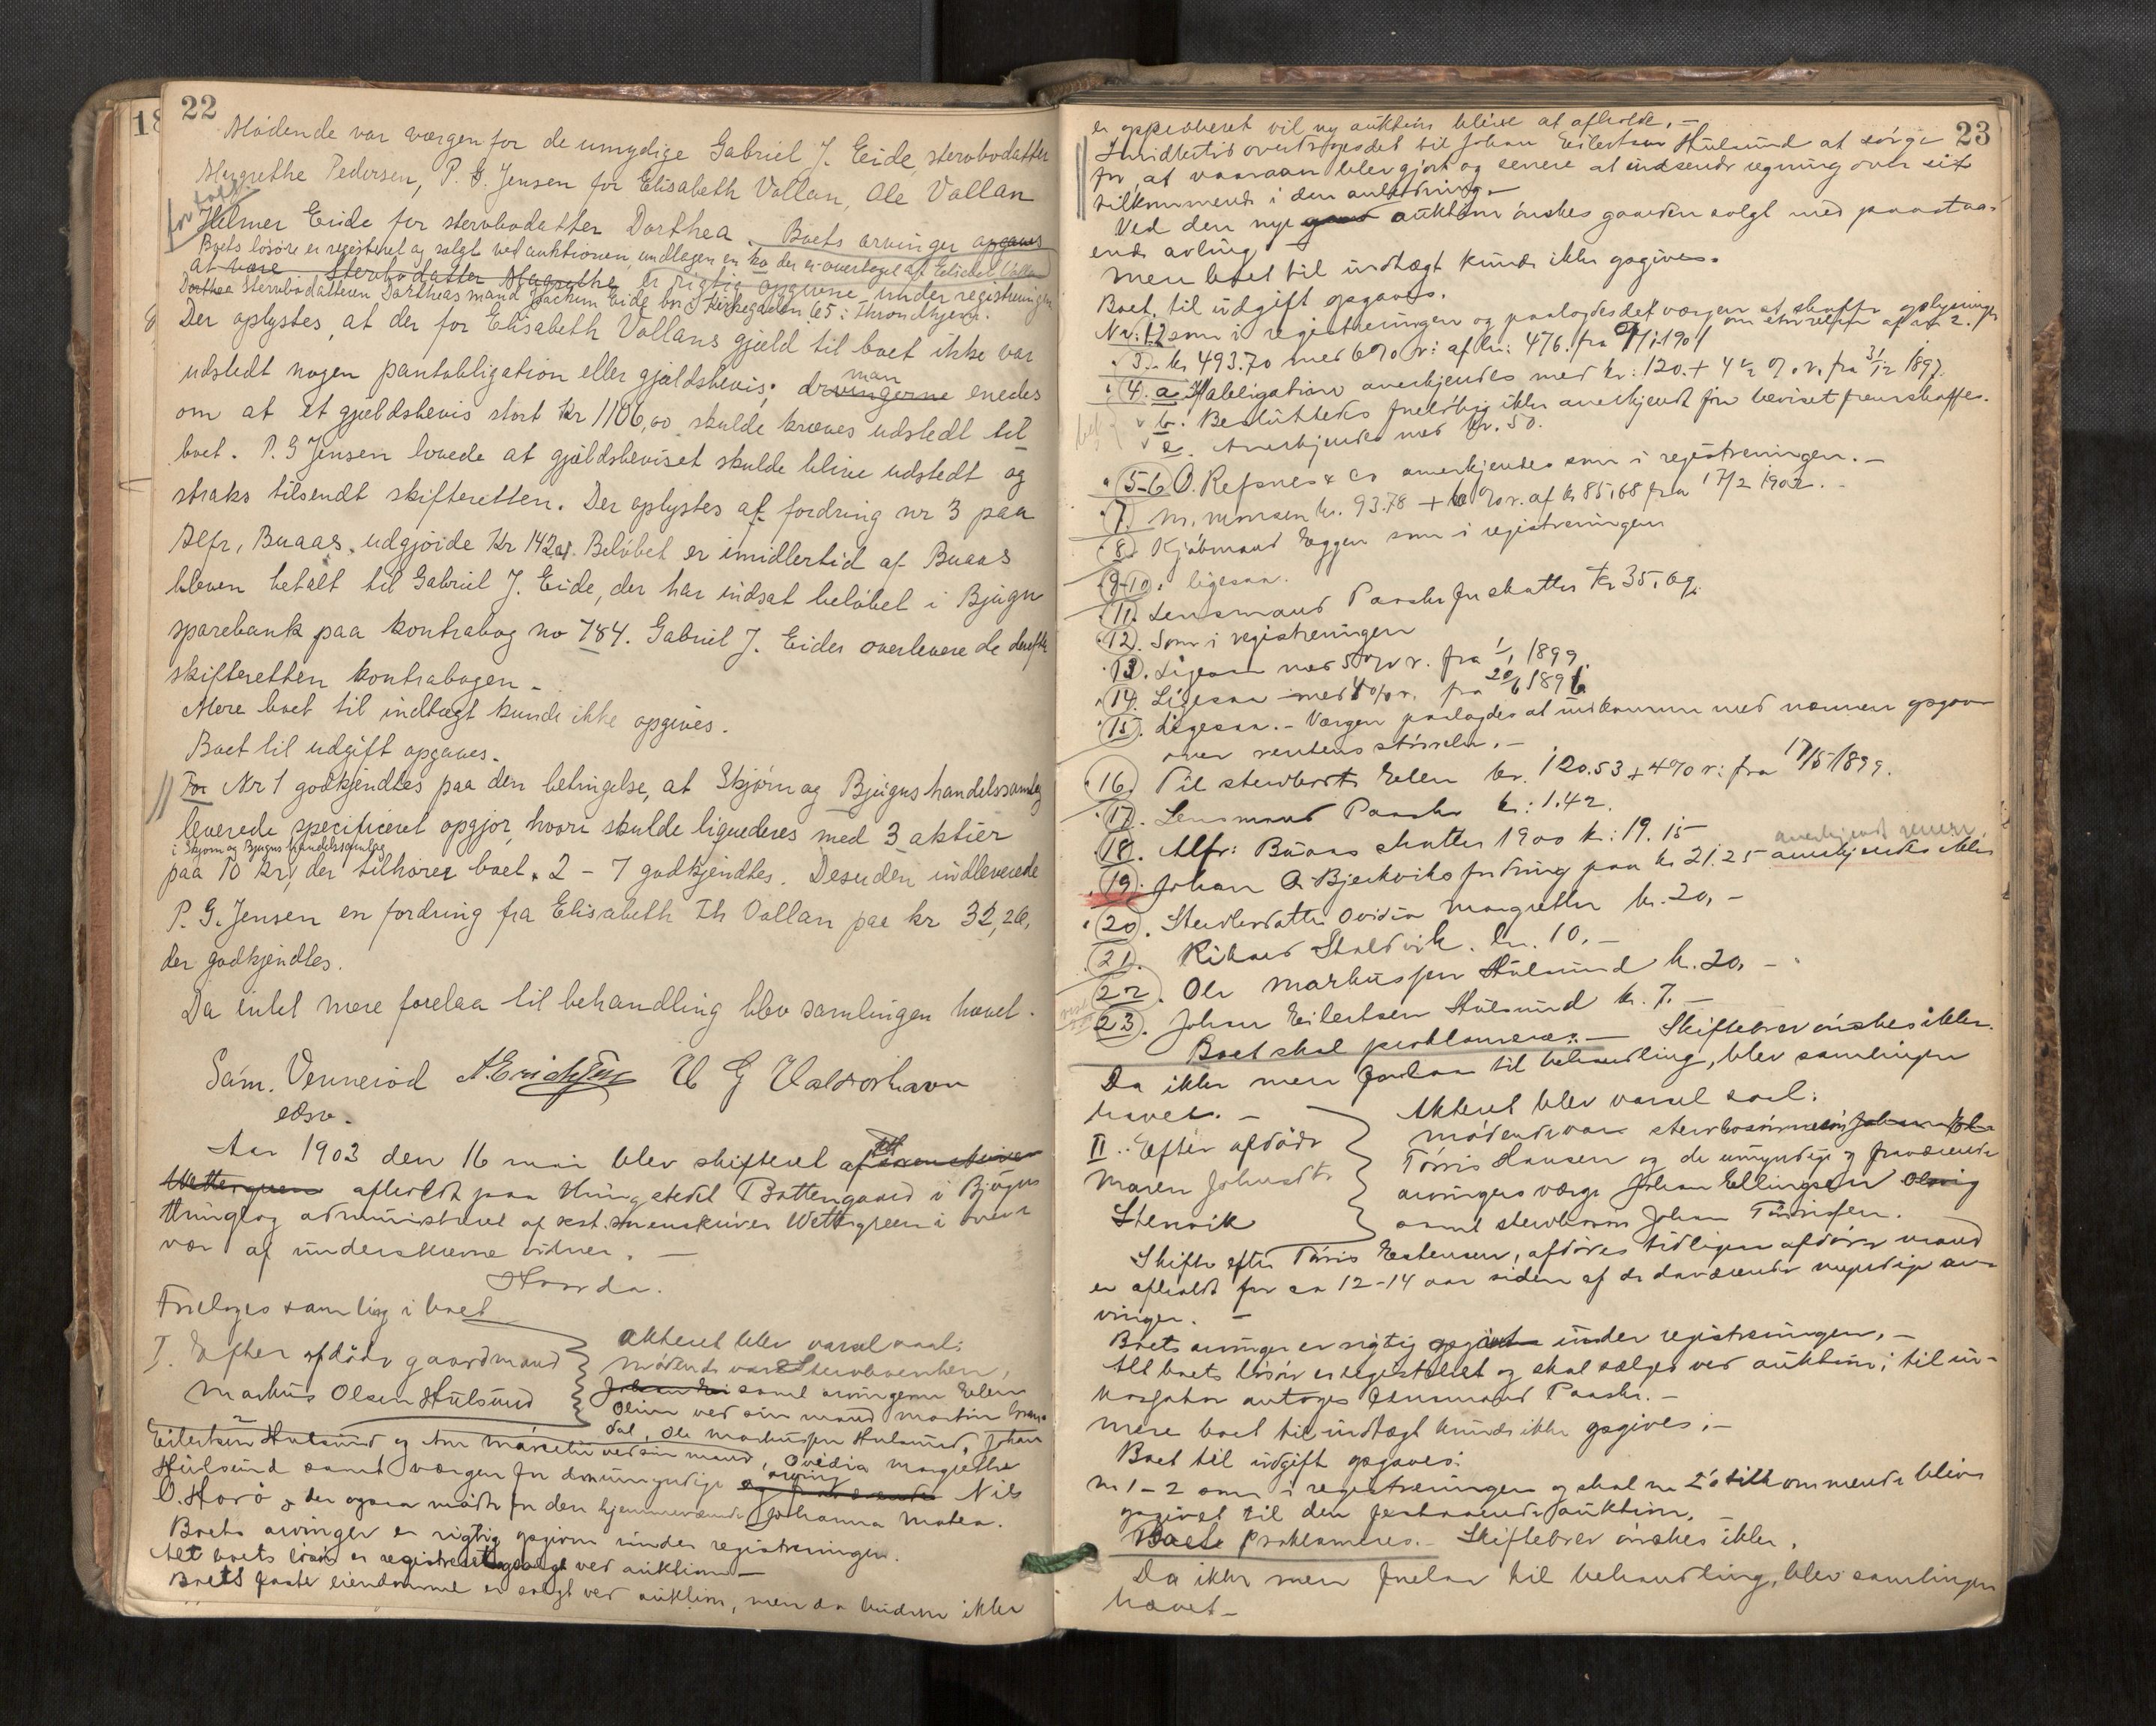 22
Mødende var værgen for de umydige Gabriel J. Eide, stervbodatter
Margrethe Pedersen, P. G. Jensen for Elisabeth Vollan, Ole Vallan
Helmer Eide for stervbodatter Dorthea. Boets arvinger opgaves
Boets løsøre er registreret og solgt ved auktionen, undtagen en ko der er overtaget af Elisabeth Vallan
at være Stervbodatter Margrethe er rigtig opgivne under registreringen
Dorthea Stervbodatteren Dortheas mand Joackim Eide bor i Kirkegaden 65 i Throndhjem.
Der oplystes, at der for Elisabeth Vollans gjæld til boet ikke var
udstedt nogen pantobligation eller gjældsbevis; man arvingerne enedes
om at et gjældsbevis stort Kr 1106,00 skulde kræves udstedt til
boet. P. G Jensen lovede at gjældsbeviset skulde blive udstedt og
straks tilsendt skifteretten. Der oplystes at fordring nr 3 paa
Alfr, Buaas, udgjorde Kr 142. Beløbet er imidlertid af Buaas
bleven betalt til Gabriel J. Eide, der har indsat beløbet i Bjugn
sparebank paa kontrabog no 784. Gabriel J. Eides overleverede derefter
skifteretten kontrabogen.
Mere boet til indtægt kunde ikke opgives.
Boet til udgift opgaves.
For Nr 1 godkjendtes paa den betingelse, at Skjørn og Bjugns handelssamlag
leverede specificeret opgjør, hvori skulde ligvederes med 3 aktier
i Skjørn og Bjugns handelssamlag
paa 10 Kr, der tilhører boet. 2 - 7 godkjendtes. Desuden indleverede
P. G. Jensen en fordring fra Elisabeth Th Vollan paa kr 32,26,
der godkjendtes.
Da intet mere forelaa til behandling blev samlingen hævet.
Sam. Vennerød A. Erichsen U G Valdershavn
edsv.
Aar 1903 den 16 mai blev skifteret af
Wettergreen afholdt paa thingstedet Bottengaard i Bjugns
thinglag administreret af kst. sorenskriver Wettergreen i over
vær af underskrevne vidner. —
Hvorda.
Foretoges samling i boet
I. Efter afdøde gaardmand
Markus Olsen Hulsund
akteret blev varsel saal:
mødende var Stervboenken,
samt arvingerne Elen
Oline ved sin mand Martin
dal, Ole Markussen Hulsund, Johan
Eilertsen Hulsund og Ane Marselie ved sin mand, Ovidia Margrethe
Hulsund samt værgen for den umyndige arving og fraværende Nils
O. Horø der ogsaa mødte for den hjemmeværende Johanna Matea.
Boets arvinger er rigtig opgivne under registreringen.
Alt boets løsøre er registreret og solgt ved auktion —
Boets faste eiendomme er solgt ved auktion, men da budene ikke
23
er approberet vil ny auktion blive at afholde. —
Imidlertid overdroges det til Johan Eilertsen Hulsund at sørge
for, at vaaraan blev gjort og senere at indsende regning over sit
tilkommende i den anledning. —
Ved den nye auktion ønskes gaarden solgt med paastaa-
ende avling
Mere boet til indtægt kunde ikke opgives.
Boet til udgift opgaves.
Nr: 1.2 som i registreringen og paalagdes det værgen at skaffe oplysninger
om størrelsen af nr 2.
3. kr 493.70 med 6% r: af kr: 476. fra 1901
4. a. Pantobligation anerkjendes med kr: 120. + 4 ½ % r. fra 31/12 1897.
b. Besluttedes foreløbig ikke anerkjendt før beviset fremskaffes.
c. Anerkjendes med kr. 50.
5-6 O. Refsnes & Co anerkjendes som i registreringen. —
7. M. Monsen kr. 93.78 + 6% r. af kr 85,68 fra 17/2 1902. -
8. Kjøbmand Eggen som i registreringen
9-10. ligesaa.
11. Lensmand Paaske for skatter Kr 35,69.
12. Som i registreringen
13. Ligesaa med 5% r. fra 1/1 1899.
14. Ligesaa med 4% r. fra 20/6 1896
15. Ligesaa. — Værgen paalagdes at indkomme med nærmere opgave
over rentens størrelse. —
16. Til stervbodt. Elen kr. 120.53 + 4% r: fra 17/5 1899.
17. Lensmand Paaske kr: 1.42.
18. Alfr: Buaas skatter 1900 kr: 19.15
anerkjendt senere
19. Johan A. Bjerkviks fordring paa kr 21.25 anerkjendes ikke
20. Stervbodatter Ovidia Margrethe kr. 20, —
21. Rikard Stalsvik. kr. 10. —
22. Ole Markussen Hulsund kr. 20, —
23. Johan Eilertsen Hulsund kr. 7. —
Boet skal proklameres. — Skiftebrev ønskes ikke.
Da ikke mere forelaa til behandling, blev samlingen
hævet. —
II. Efter afdøde
Maren Johnsdt.
Stenvik
Akteret blev varsel saal:
mødende var stervbosønnen
Tørris Hansen og de umyndige og fraværende
arvingers værge Johan Ellingsen
samt stervbosøn Johan Tørrissen.
Skifte efter Tørris Estensen, afdødes tidligere afdøde mand
er afholdt for ca 12-14 aar siden af de daværende myndige ar-
vinger. —
Boets arvinger er rigtig opgivet under registreringen. —
Alt boets løsøre er registreret og skal sælges ved auktion; til in-
kassator antages lensmand Paaske. —
Mere boet til indtægt kunde ikke opgives. —
Boet til udgift opgaves:
nr 1-2 som i registreringen og skal nr 2's tilkommende blive
opgivet til den forestaaende auktion. —
Boet proklameres. — Skiftebrev ønskes ikke.
Da ikke mere forelaa til behandling, blev samlingen
hævet —